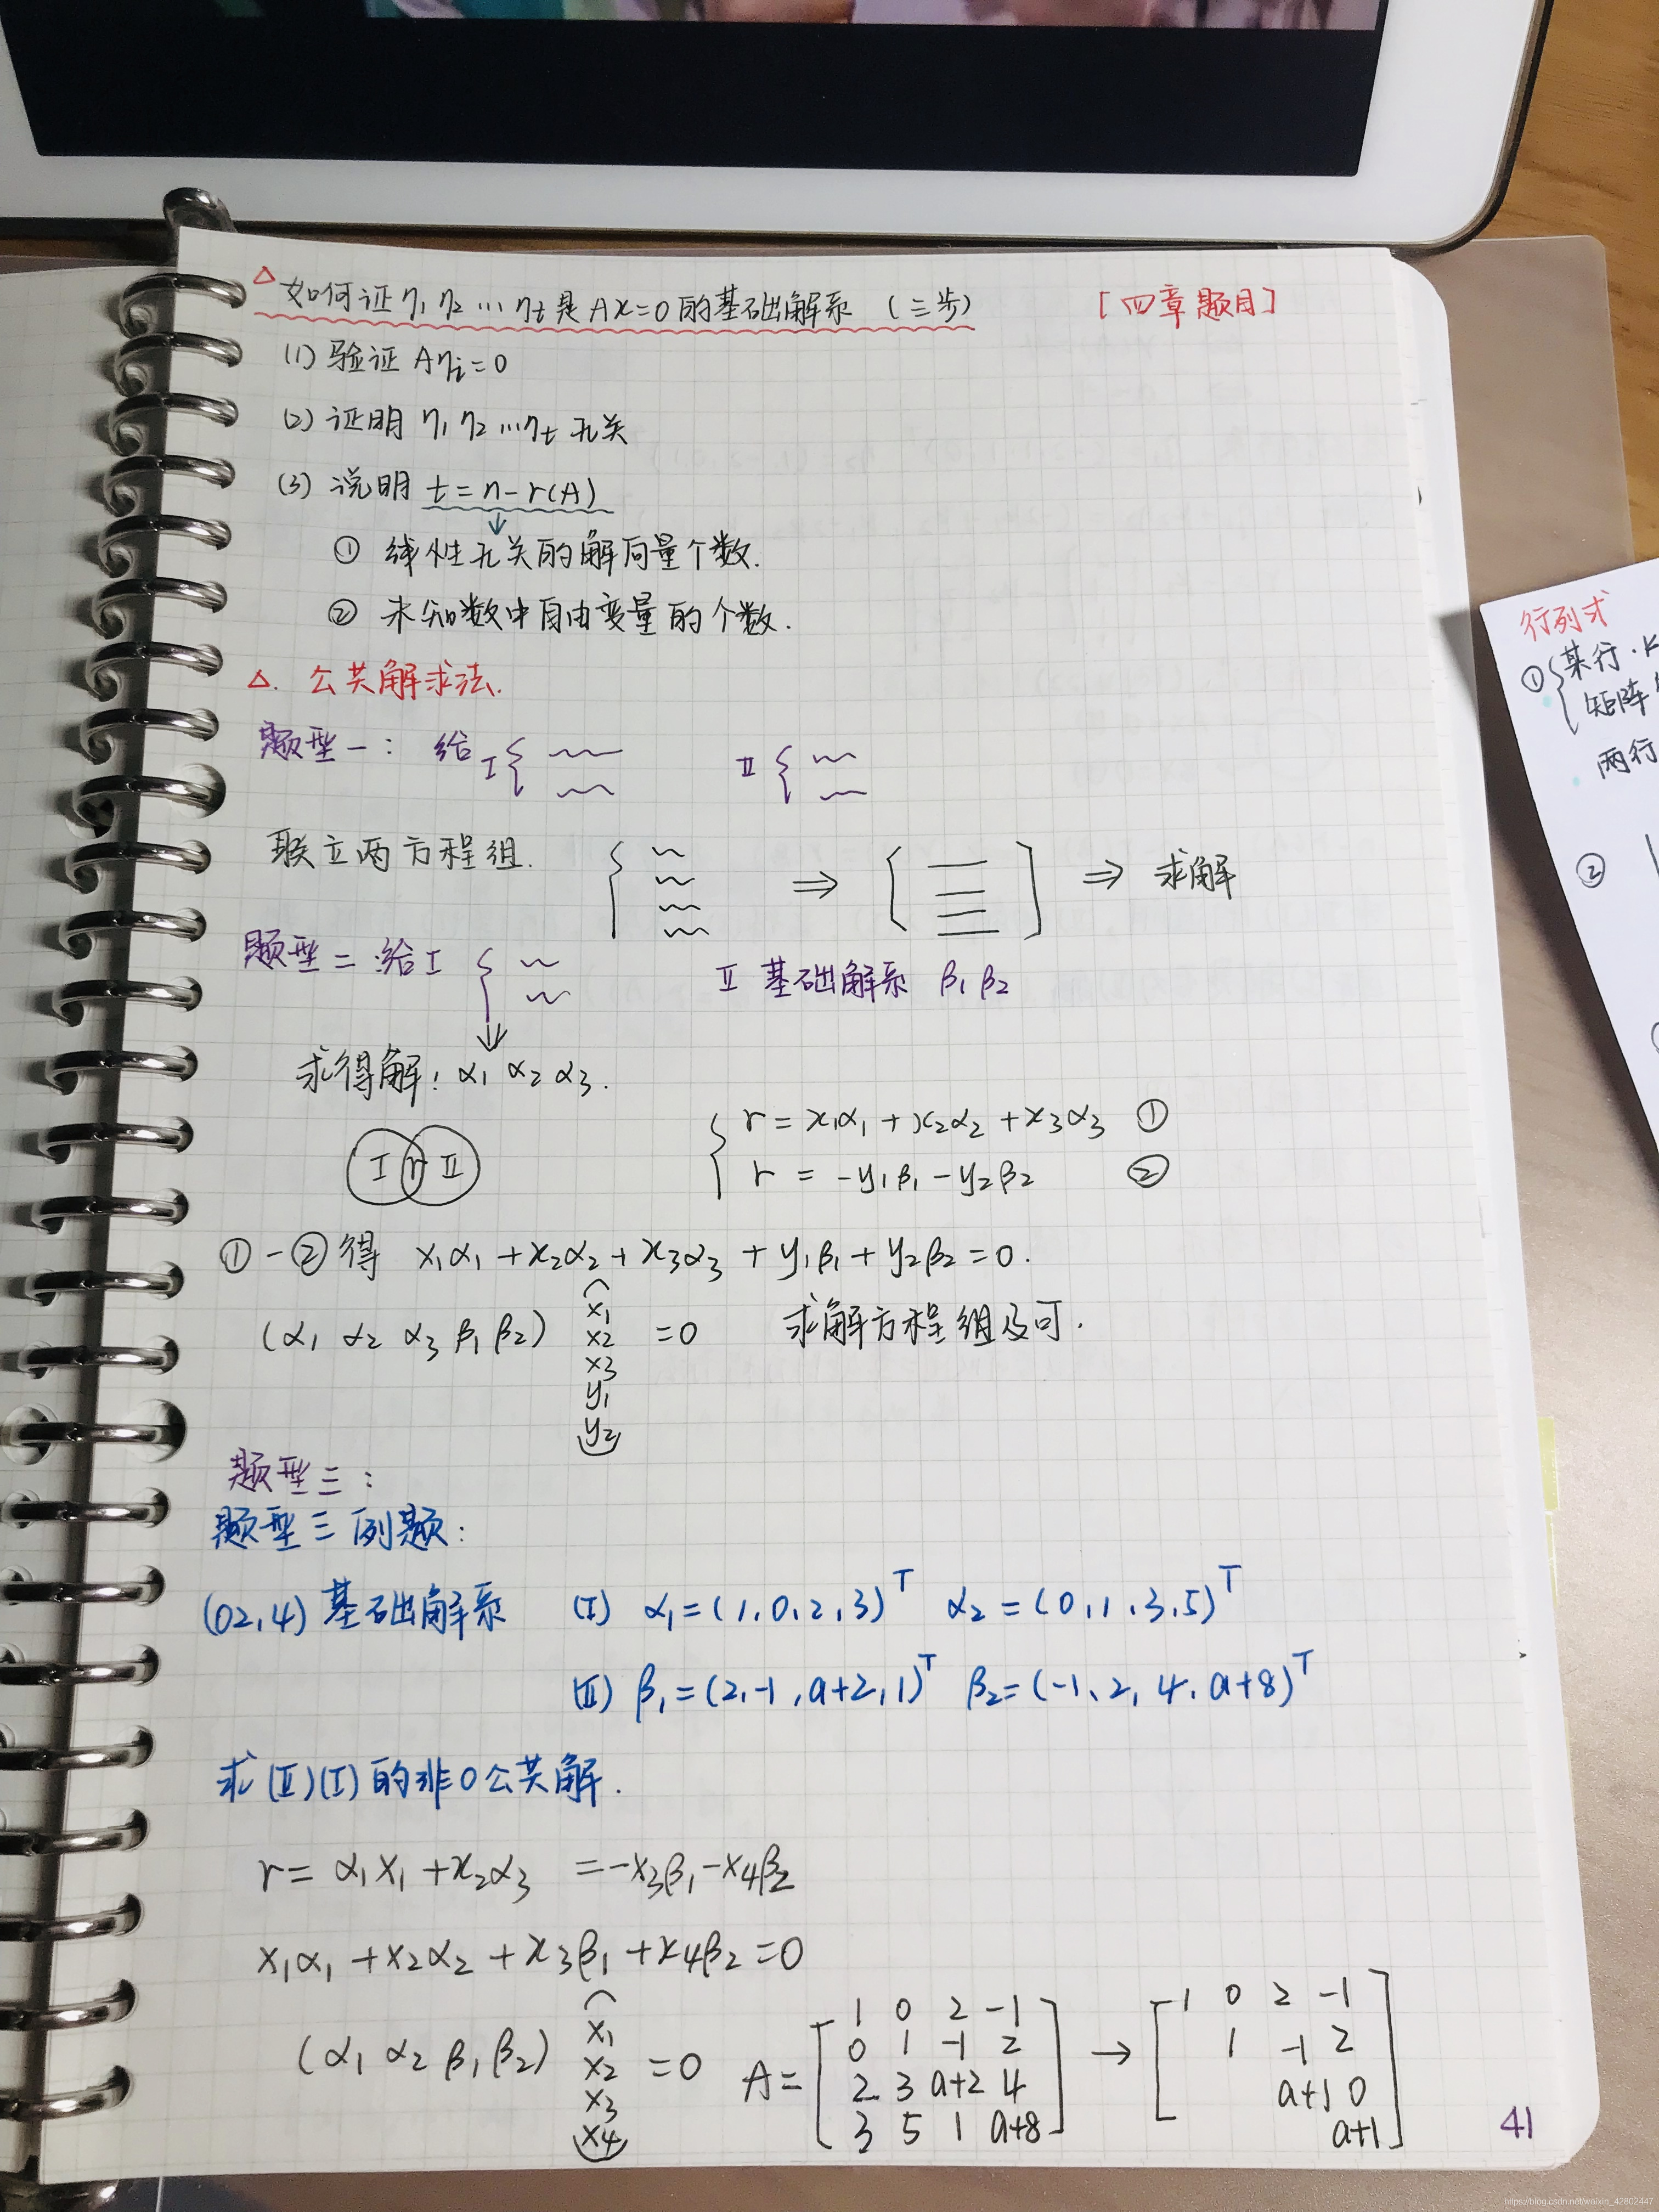 △ 如何证 η₁ η₂ … ηt 是 Ax=0 的基础解系 (三步) [四章题目]
(1) 验证 Aηi=0
(2) 证明 η₁ η₂ …ηt 无关
(3) 说明 t=n-r(A)
↓
① 线性无关的解向量个数.
② 未知数中自由变量的个数.
△. 公共解求法.
题型一: 给 I { II {
联立两方程组. { ⇒ [ ] ⇒ 求解
题型二:给I { II 基础解系 β₁ β₂
↓
求得解: α₁ α₂ α₃.
{ r = x₁α₁ + x₂α₂ + x₃α₃ ①
I r II
r = -y₁β₁ - y₂β₂ ②
① - ② 得 x₁α₁ + x₂α₂ + x₃α₃ + y₁β₁ + y₂β₂ = 0.
(α₁ α₂ α₃ β₁ β₂) (x₁ x₂ x₃ y₁ y₂) =0 求解方程组及可.
题型三:
题型三例题:
(02,4) 基础解系 (I) α₁=(1,0,2,3)ᵀ α₂=(0,1,3,5)ᵀ
(II) β₁=(2,-1,a+2,1)ᵀ β₂=(-1,2,4,a+8)ᵀ
求(II)(I)的非0公共解.
r= α₁x₁ +x₂α₃ =-x₃β₁-x₄β₂
x₁α₁ +x₂α₂ +x₃β₁ +x₄β₂ =0
(α₁ α₂ β₁ β₂) (x₁ x₂ x₃ x₄) =0 A= [ → [
1 0 2 -1
0 1 -1 2
2 3 a+2 4
3 5 1 a+8
1 0 2 -1
1 -1 2
a+1 0
a+1
41
行列式
① { 某行·K
矩阵
两行
②
https://blog.csdn.net/weixin_42802447